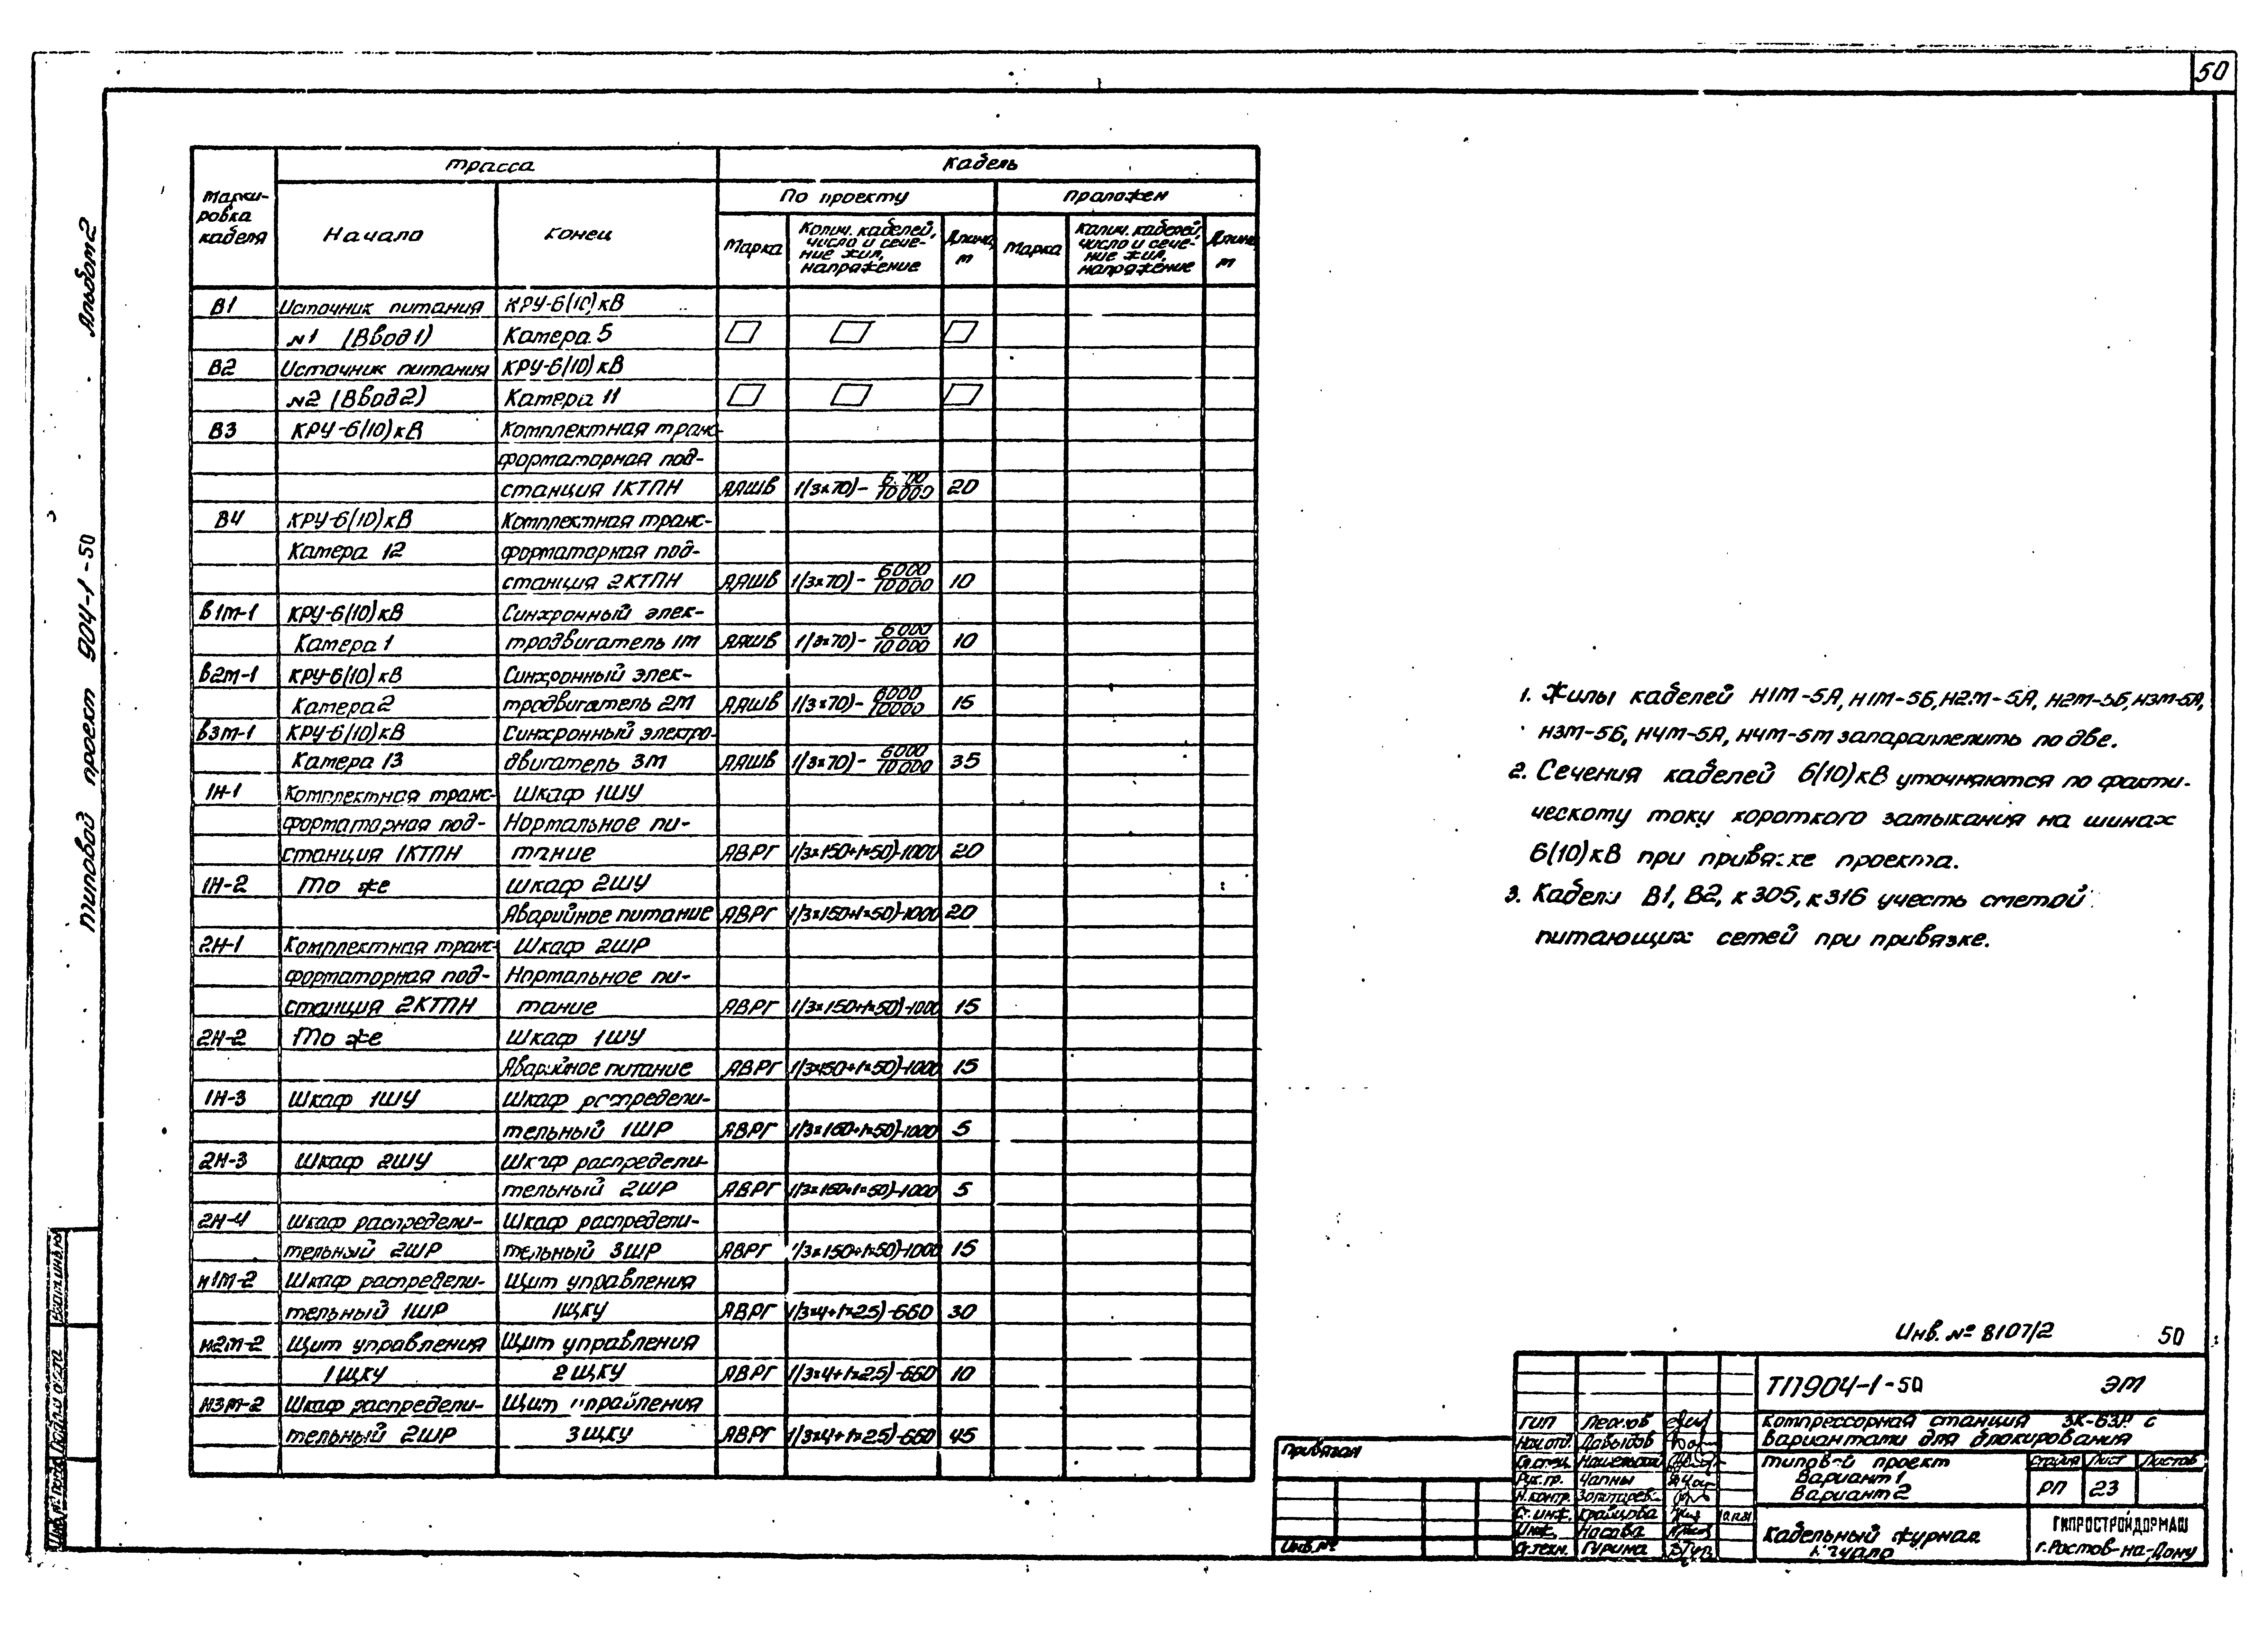 50
Альбом 2
Типовой проект 904-1-50
Марки-
ровка
кабеля
Трасса
Кабель
Начало
Конец
По проекту
Проложен
Марка
Колич. кабелей,
число и сече-
ние жил,
напряжение
Длина,
м
Марка
Колич. кабелей,
число и сече-
ние жил,
напряжение
Длина,
м
В1 Источник питания КРУ-6(10)кВ
№1 (Ввод 1) Камера 5
В2 Источник питания КРУ-6(10)кВ
№2 (Ввод 2) Камера 11
В3 КРУ-6(10)кВ Комплектная транс-
форматорная под-
станция 1КТПН ААШВ 1(3×70)- /10000 20
В4 КРУ-6(10)кВ Комплектная транс-
Камера 12 форматорная под-
станция 2КТПН ААШВ 1(3×70)-6000/10000 10
в1м-1 КРУ-6(10)кВ Синхронный элек-
Камера 1 тродвигатель 1м ААШВ 1(3×70)-6000/10000 10
в2м-1 КРУ-6(10)кВ Синхронный элек-
Камера 2 тродвигатель 2м ААШВ 1(3×70)-6000/10000 15
в3м-1 КРУ-6(10)кВ Синхронный электро-
Камера 13 двигатель 3м ААШВ 1(3×70)-6000/10000 35
1Н-1 Комплектная транс- Шкаф 1ШУ
форматорная под- Нормальное пи-
станция 1КТПН тание АВРГ 1(3×150+1×50)-1000 20
1Н-2 То же Шкаф 2ШУ
Аварийное питание АВРГ 1(3×150+1×50)-1000 20
2Н-1 Комплектная транс- Шкаф 2ШР
форматорная под- Нормальное пи-
станция 2КТПН тание АВРГ 1(3×150+1×50)-1000 15
2Н-2 То же Шкаф 1ШУ
Аварийное питание АВРГ 1(3×150+1×50)-1000 15
1Н-3 Шкаф 1ШУ Шкаф распредели-
тельный 1ШР АВРГ 1(3×150+1×50)-1000 5
2Н-3 Шкаф 2ШУ Шкаф распредели-
тельный 2ШР АВРГ 1(3×150+1×50)-1000 5
2Н-4 Шкаф распредели- Шкаф распредели-
тельный 2ШР тельный 3ШР АВРГ 1(3×150+1×50)-1000 15
н1м-2 Шкаф распредели- Щит управления
тельный 1ШР 1ЩКУ АВРГ 1(3×4+1×2.5)-660 30
н2м-2 Щит управления Щит управления
1ЩКУ 2ЩКУ АВРГ 1(3×4+1×2.5)-660 10
н3м-2 Шкаф распредели- Щит управления
тельный 2ШР 3ЩКУ АВРГ 1(3×4+1×2.5)-660 45
1. Жилы кабелей Н1м-5А, Н1м-5Б, Н2м-5А, Н2м-5Б, Н3м-5А,
Н3м-5Б, Н4м-5А, Н4м-5м запараллелить по две.
2. Сечения кабелей 6(10)кВ уточняются по факти-
ческому току короткого замыкания на шинах
6(10)кВ при привязке проекта.
3. Кабели В1, В2, к305, к316 учесть сметой
питающих сетей при привязке.
Инв. № 8107/2 50
ТП904-1-50 ЭМ
Компрессорная станция 3К-63А с
вариантами для блокирования
Типовой проект
Вариант 1
Вариант 2
Стадия Лист Листов
РП 23
Кабельный журнал
начало
ГИПРОСТРОЙДОРМАШ
г.Ростов-на-Дону
ГИП
Нач.отд. Давыдов
Гл.спец.
Рук.гр. Чапны
Н.контр.
Ст.инж. Кравцова
Инж. Носова
Ст.техн. Гурина
Привязан
Инв.№
Взам.инв.№
Подп. и дата
Инв.№ подл.